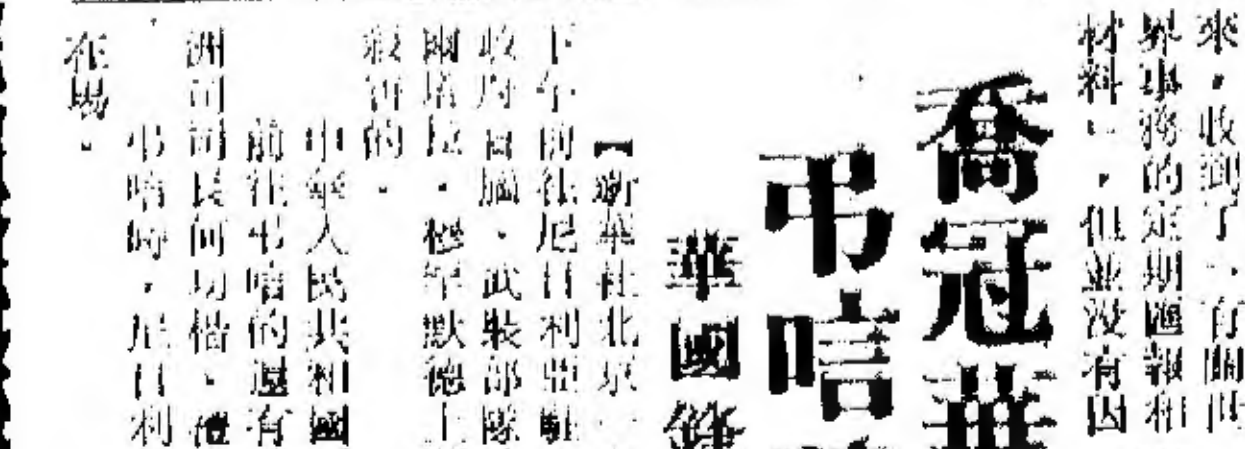 來,收到了「有關世
界事務的定期匯報和
材料」,但並沒有因
喬冠華
弔唁
華國鋒
【新華社北京
下午前往尼日利亞駐
政府首腦、武裝部隊
爾塔拉·穆罕默德上
殺害的。
中華人民共和國
前往弔唁的還有
洲司司長何功楷、禮
弔唁時,尼日利
在場。